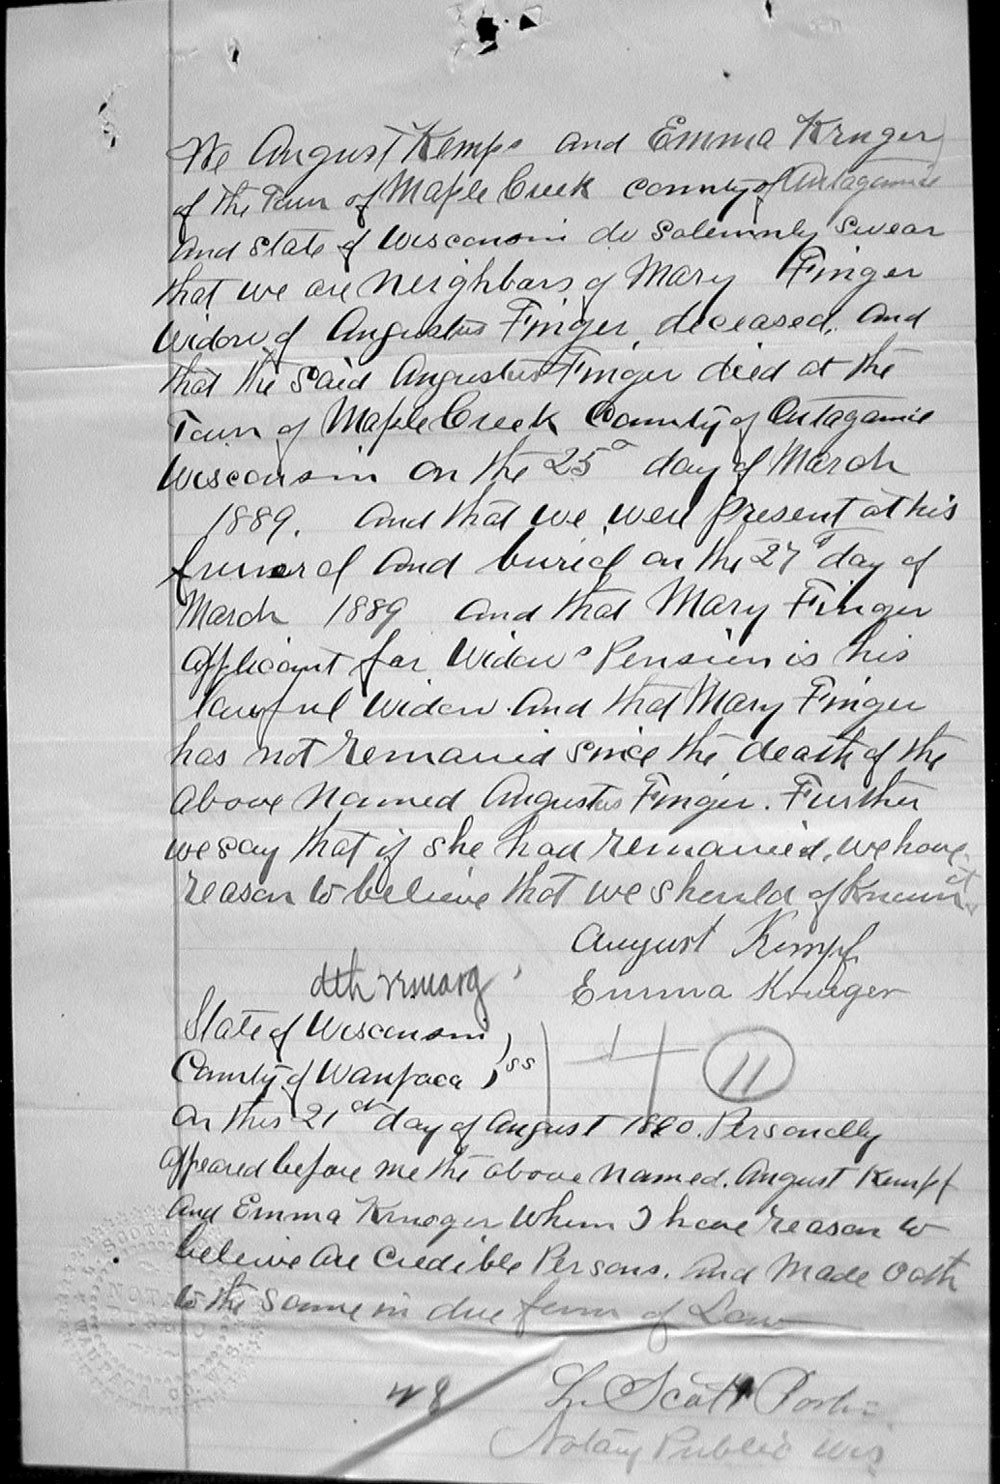 We August Kempf and Emma Kruger
of the Town of Maple Creek county of Outagamie
and State of Wisconsin do Solemnly Swear
that we are neighbors of Mary Finger
widow of Augustus Finger, deceased. and
that the said Augustus Finger died at the
Town of Maple Creek County of Outagamie
Wisconsin on the 25 day of March
1889. and that we were present at his
funeral and buried on the 27 day of
March 1889 and that Mary Finger
applicant for Widows Pension is his
lawful widow. and that Mary Finger
has not remarried since the death of the
above named Augustus Finger. Further
we say that if she had remarried, we have
reason to believe that we should of known it
August Kempf
Emma Krueger
dth remarg
State of Wisconsin
County of Waupaca ss
11
on this 21 day of August 1890. Personally
appeared before me the above named. August Kempf
and Emma Krueger whom I have reason to
beleive are credible Persons. and made oath
to the same in due form of Law
48
Scott
Notary Public Wis
SCOTT
NOTA
WAUPACA CO. WIS.